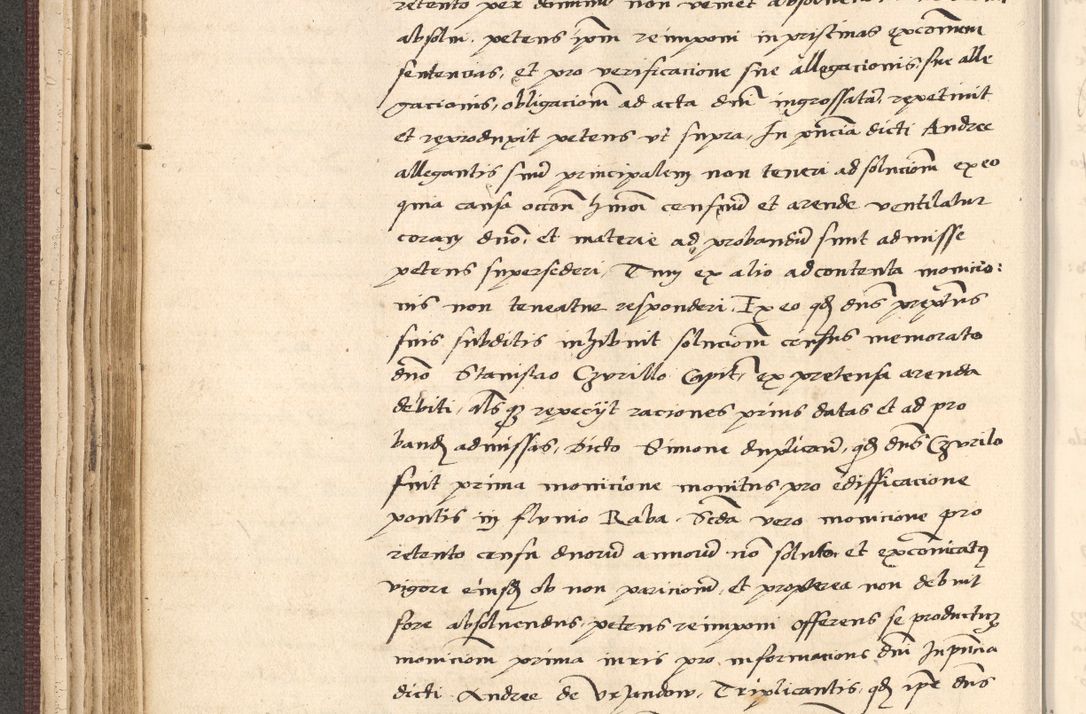 retento per dominum non veniet absolvend
absolvi. petens ipm reimponi in pristinas excomem
sentencias, et pro verificacione sue allegacionis, sue alle
gacionis, obligaciom ad acta dnm ingrossatam, repetivit
et reproduxit petens ut supra, In pncia dicti Andree
allegantis suum principalem non teneri ad soluciom ex eo
quia causa occon hmoi censuum et arende ventilatur
coram dno, et materie ad probandum sunt admisse
petens supersederi, Tum ex alio ad contenta monicio:
nis non teneatur responderi. Ex eo qd dns
suis subditis inhibuit soluciom census memorato
dno Stanislao Czurillo Capit, ex pretensa arenda
debiti, als repeciit raciones prius datas et ad pro
band admissas, Dicto Simone duplican, qd dns Czurilo
fuit prima monicione monitus pro edifficacione
pontis in fluvio Raba. Scda vero monicione pro
retento censu duorum annorum non soluto et excomicatus
vigore eiusd ob non paricionem, et propterea non debuit
fore absolvendus, petens reimponi offerens se producturum
moniciom prima iuris pro informacione dni In pncia
dicti Andree de Vrzandow, Triplicantis, qd ipe dns